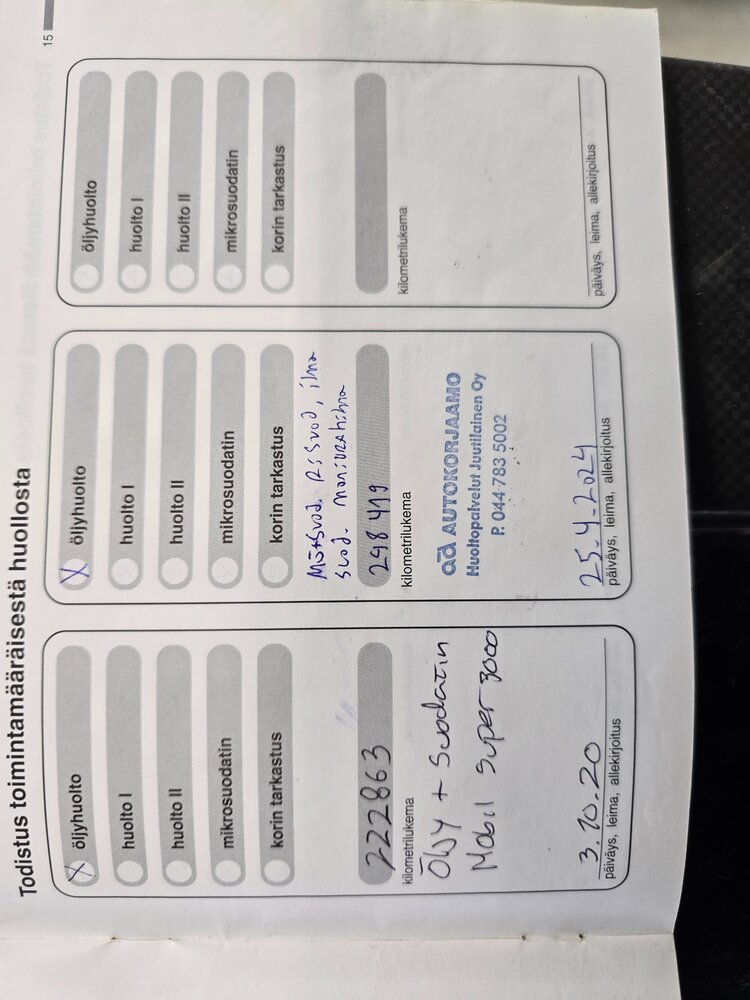 15
Todistus toimintamääräisestä huollosta
X öljyhuolto
huolto I
huolto II
mikrosuodatin
korin tarkastus
222863
kilometrilukema
ÖLJY + Suodatin
Mobil Super 3000
3.10.20
päiväys, leima, allekirjoitus
X öljyhuolto
huolto I
huolto II
mikrosuodatin
korin tarkastus
ilma
suod. moniurahihna
298 419
kilometrilukema
ad AUTOKORJAAMO
Huoltopalvelut Juutilainen Oy
P. 044-783 5002
25.4.2024
päiväys, leima, allekirjoitus
öljyhuolto
huolto I
huolto II
mikrosuodatin
korin tarkastus
kilometrilukema
päiväys, leima, allekirjoitus